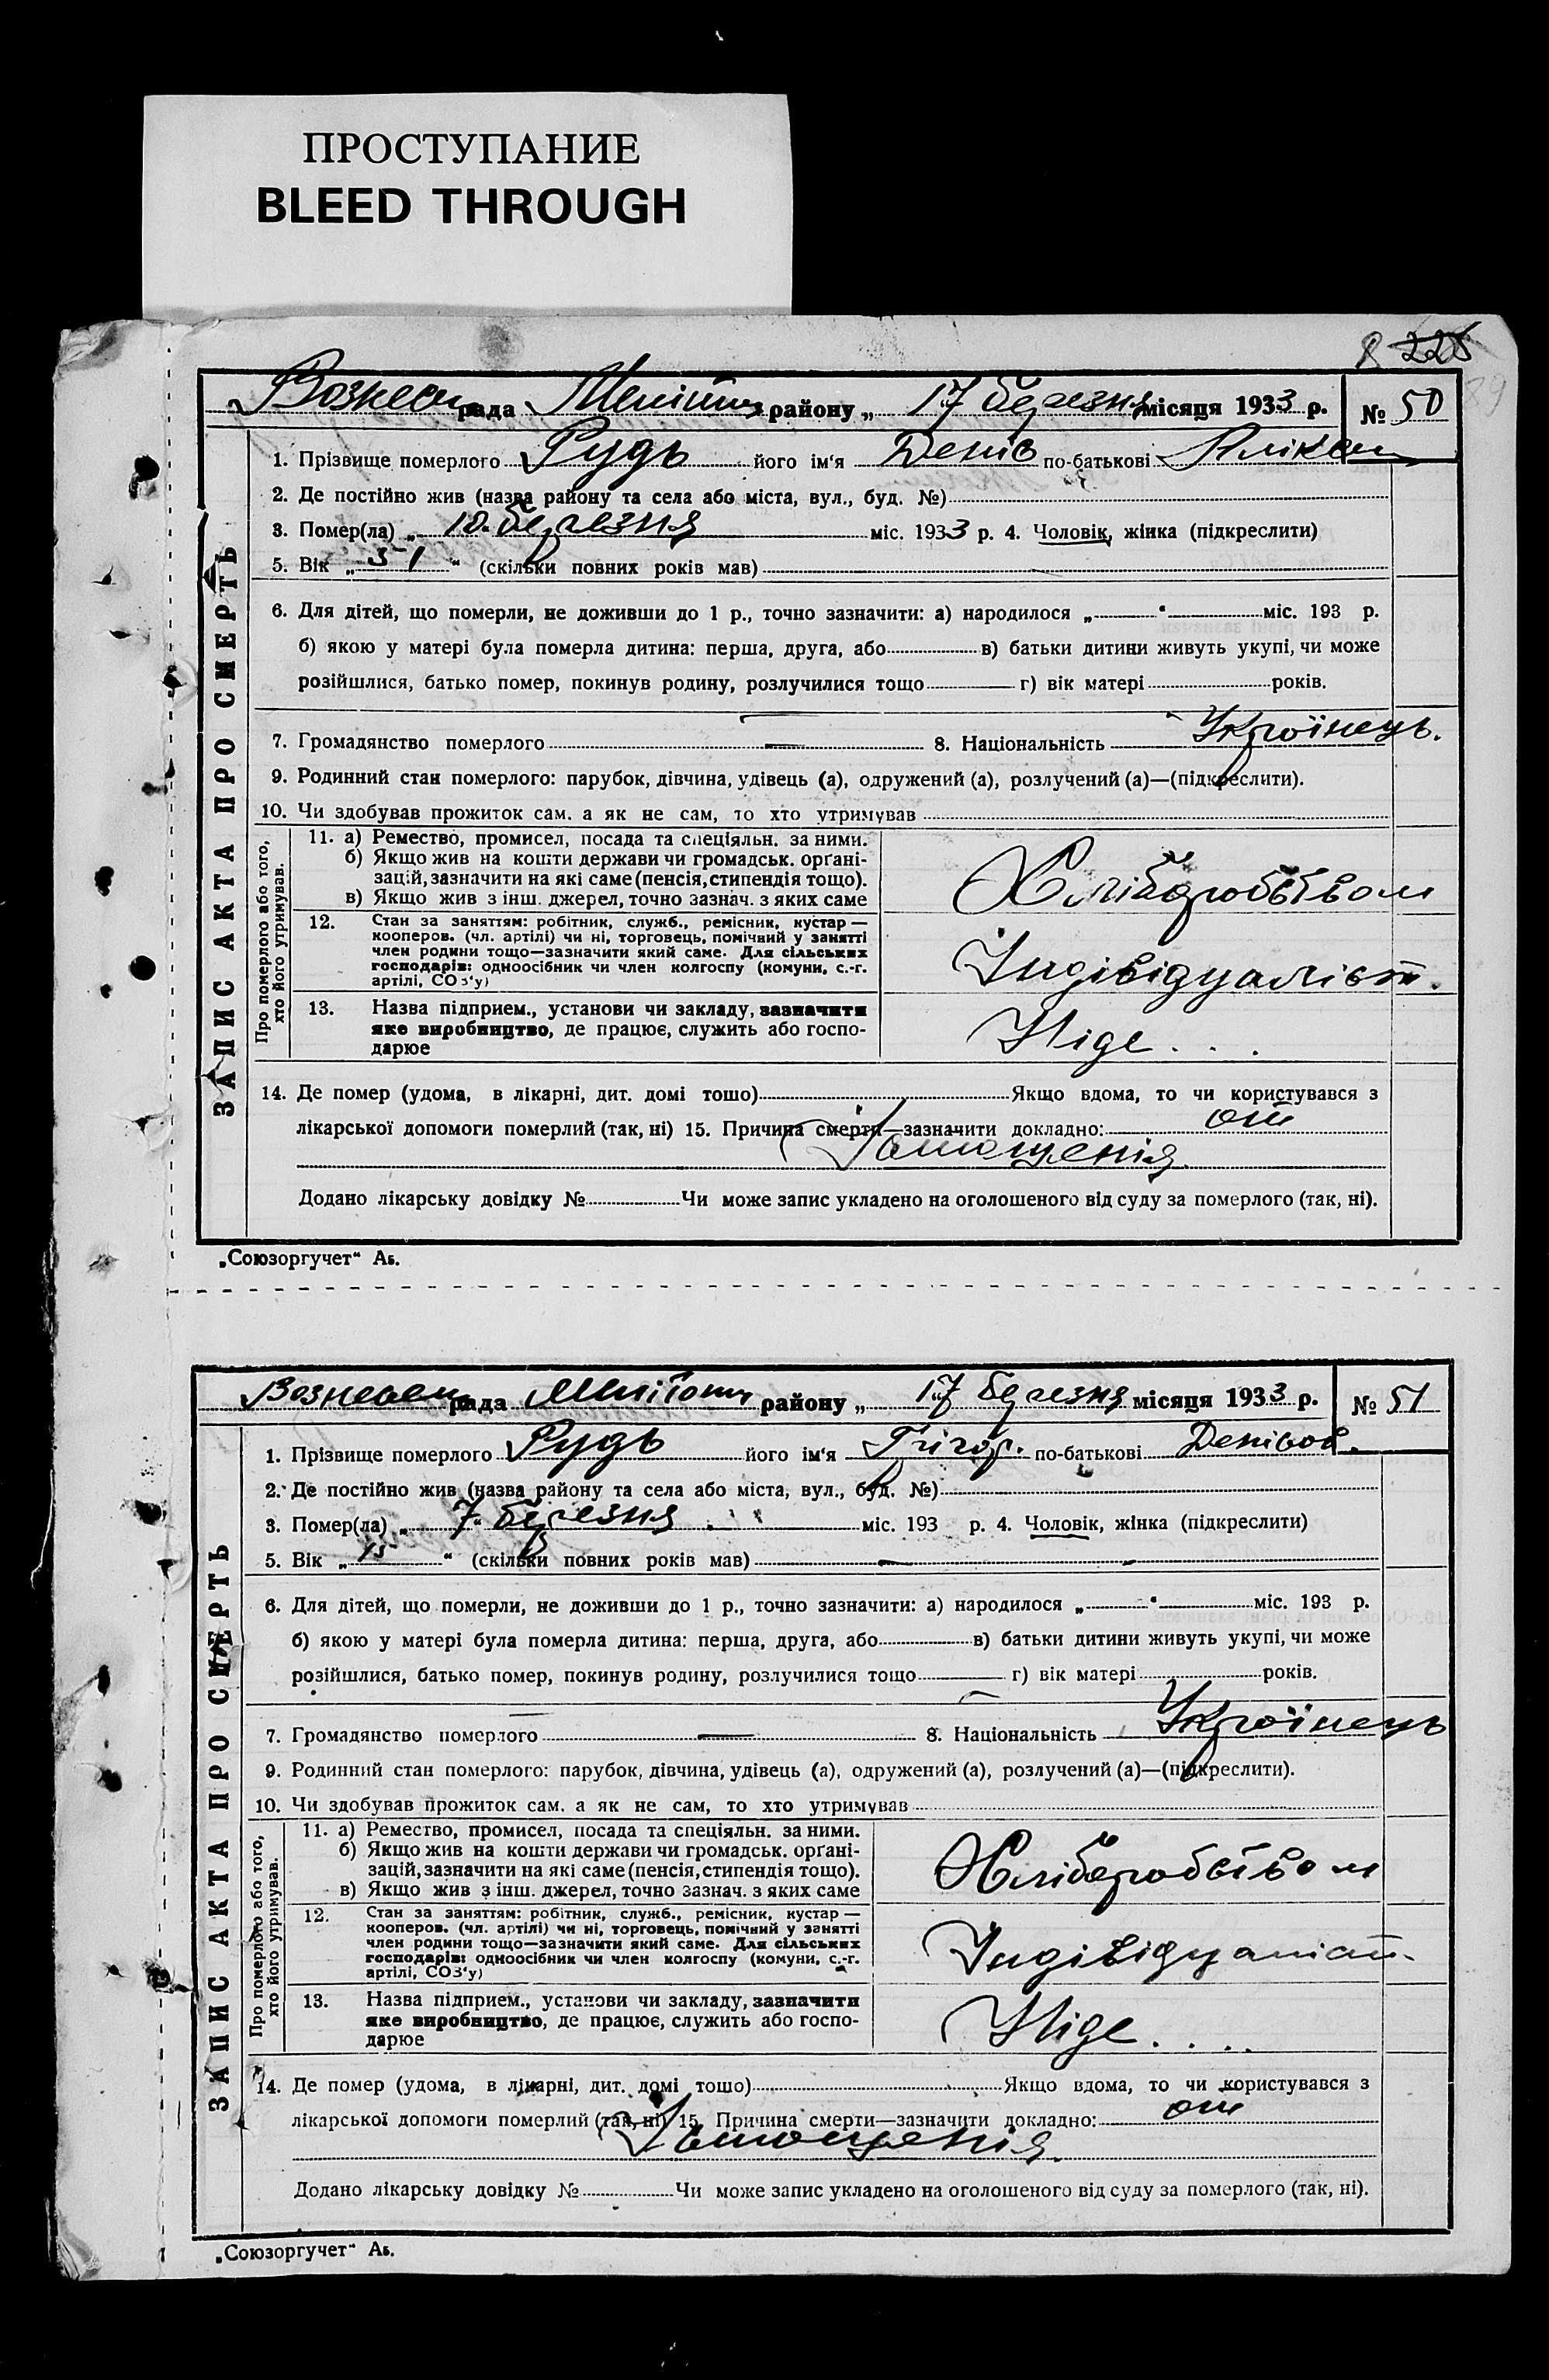 ПРОСТУПАНИЕ
BLEED THROUGH
225
Вознесен рада Меліт району „ 17 березня місяця 1933 р. № 50
1. Прізвище померлого Рудь його ім‘я Денис по-батькові
2. Де постійно жив (назва району та села або міста, вул., буд. №)
3. Помер(ла) „ 10 березня міс. 1933 р. 4. Чоловік, жінка (підкреслити)
5. Вік „ 51 “ (скільки повних років мав)
6. Для дітей, що померли, не доживши до 1 р., точно зазначити: а) народилося „ “ міс. 193 р.
б) якою у матері була померла дитина: перша, друга, або в) батьки дитини живуть укупі, чи може
розійшлися, батько помер, покинув родину, розлучилися тощо г) вік матері років.
7. Громадянство померлого — 8. Національність Украінець.
9. Родинний стан померлого: парубок, дівчина, удівець (а), одружений (а), розлучений (а)—(підкреслити).
10. Чи здобував прожиток сам. а як не сам, то хто утримував
ЗАПИС АКТА ПРО СМЕРТЬ
Про померлого або того,
хто його утримував.
11. а) Ремество, промисел, посада та спеціяльн. за ними.
б) Якщо жив на кошти держави чи громадськ. орґані-
зацій, зазначити на які саме (пенсія, стипендія тощо).
в) Якщо жив з інш. джерел, точно зазнач. з яких саме
Хліборобством
12. Стан за заняттям: робітник, служб., ремісник, кустар —
кооперов. (чл. артілі) чи ні, торговець, помічний у занятті
член родини тощо—зазначити який саме. Для сільських
господарів: одноосібник чи член колгоспу (комуни, с.-г.
артілі, СОЗ‘у)
Індівідуаліст.
13. Назва підприєм., установи чи закладу, зазначити
яке виробництво, де працює, служить або госпо-
дарює
Ніде . . .
14. Де помер (удома, в лікарні, дит. домі тощо) Якщо вдома, то чи користувався з
лікарської допомоги померлий (так, ні) 15. Причина смерти—зазначити докладно: от
Істощенія.
Додано лікарську довідку № Чи може запис укладено на оголошеного від суду за померлого (так, ні).
„Союзоргучет“ Аь.
Вознесен рада Мелітоп району „ 17 березня місяця 1933 р. № 51
1. Прізвище померлого Рудь його ім‘я Грігор. по-батькові Денисов.
2. Де постійно жив (назва району та села або міста, вул., буд. №)
3. Помер(ла) „ 7 березня міс. 193 р. 4. Чоловік, жінка (підкреслити)
5. Вік „ 15 “ (скільки повних років мав)
6. Для дітей, що померли, не доживши до 1 р., точно зазначити: а) народилося „ “ міс. 193 р.
б) якою у матері була померла дитина: перша, друга, або в) батьки дитини живуть укупі, чи може
розійшлися, батько помер, покинув родину, розлучилися тощо г) вік матері років.
7. Громадянство померлого — 8. Національність Украінець
9. Родинний стан померлого: парубок, дівчина, удівець (а), одружений (а), розлучений (а)—(підкреслити).
10. Чи здобував прожиток сам. а як не сам, то хто утримував
ЗАПИС АКТА ПРО СМЕРТЬ
Про померлого або того,
хто його утримував.
11. а) Ремество, промисел, посада та спеціяльн. за ними.
б) Якщо жив на кошти держави чи громадськ. орґані-
зацій, зазначити на які саме (пенсія, стипендія тощо).
в) Якщо жив з інш. джерел, точно зазнач. з яких саме
Хліборобством
12. Стан за заняттям: робітник, служб., ремісник, кустар —
кооперов. (чл. артілі) чи ні, торговець, помічний у занятті
член родини тощо—зазначити який саме. Для сільських
господарів: одноосібник чи член колгоспу (комуни, с.-г.
артілі, СОЗ‘у)
Індівідуаліст.
13. Назва підприєм., установи чи закладу, зазначити
яке виробництво, де працює, служить або госпо-
дарює
Ніде . . . .
14. Де помер (удома, в лікарні, дит. домі тощо) Якщо вдома, то чи користувався з
лікарської допомоги померлий (так, ні) 15. Причина смерти—зазначити докладно: от
Істощенія.
Додано лікарську довідку № Чи може запис укладено на оголошеного від суду за померлого (так, ні).
„Союзоргучет“ Аь.